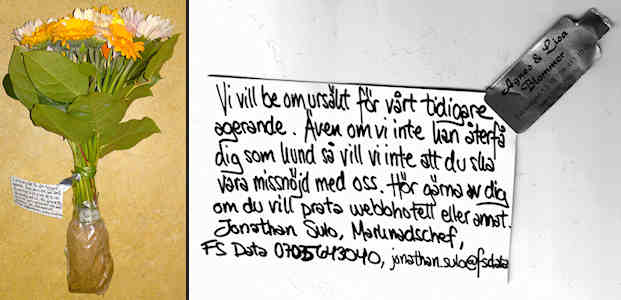 Agnes & Lisa
Blommor
Vi vill be om ursäkt för vårt tidigare
agerande. Även om vi inte kan återfå
dig som kund så vill vi inte att du ska
vara missnöjd med oss. Hör gärna av dig
om du vill prata webbhotell eller annat.
Jonathan Sulo, Marknadschef,
FS Data 0705643040, jonathan.sulo@fsdata